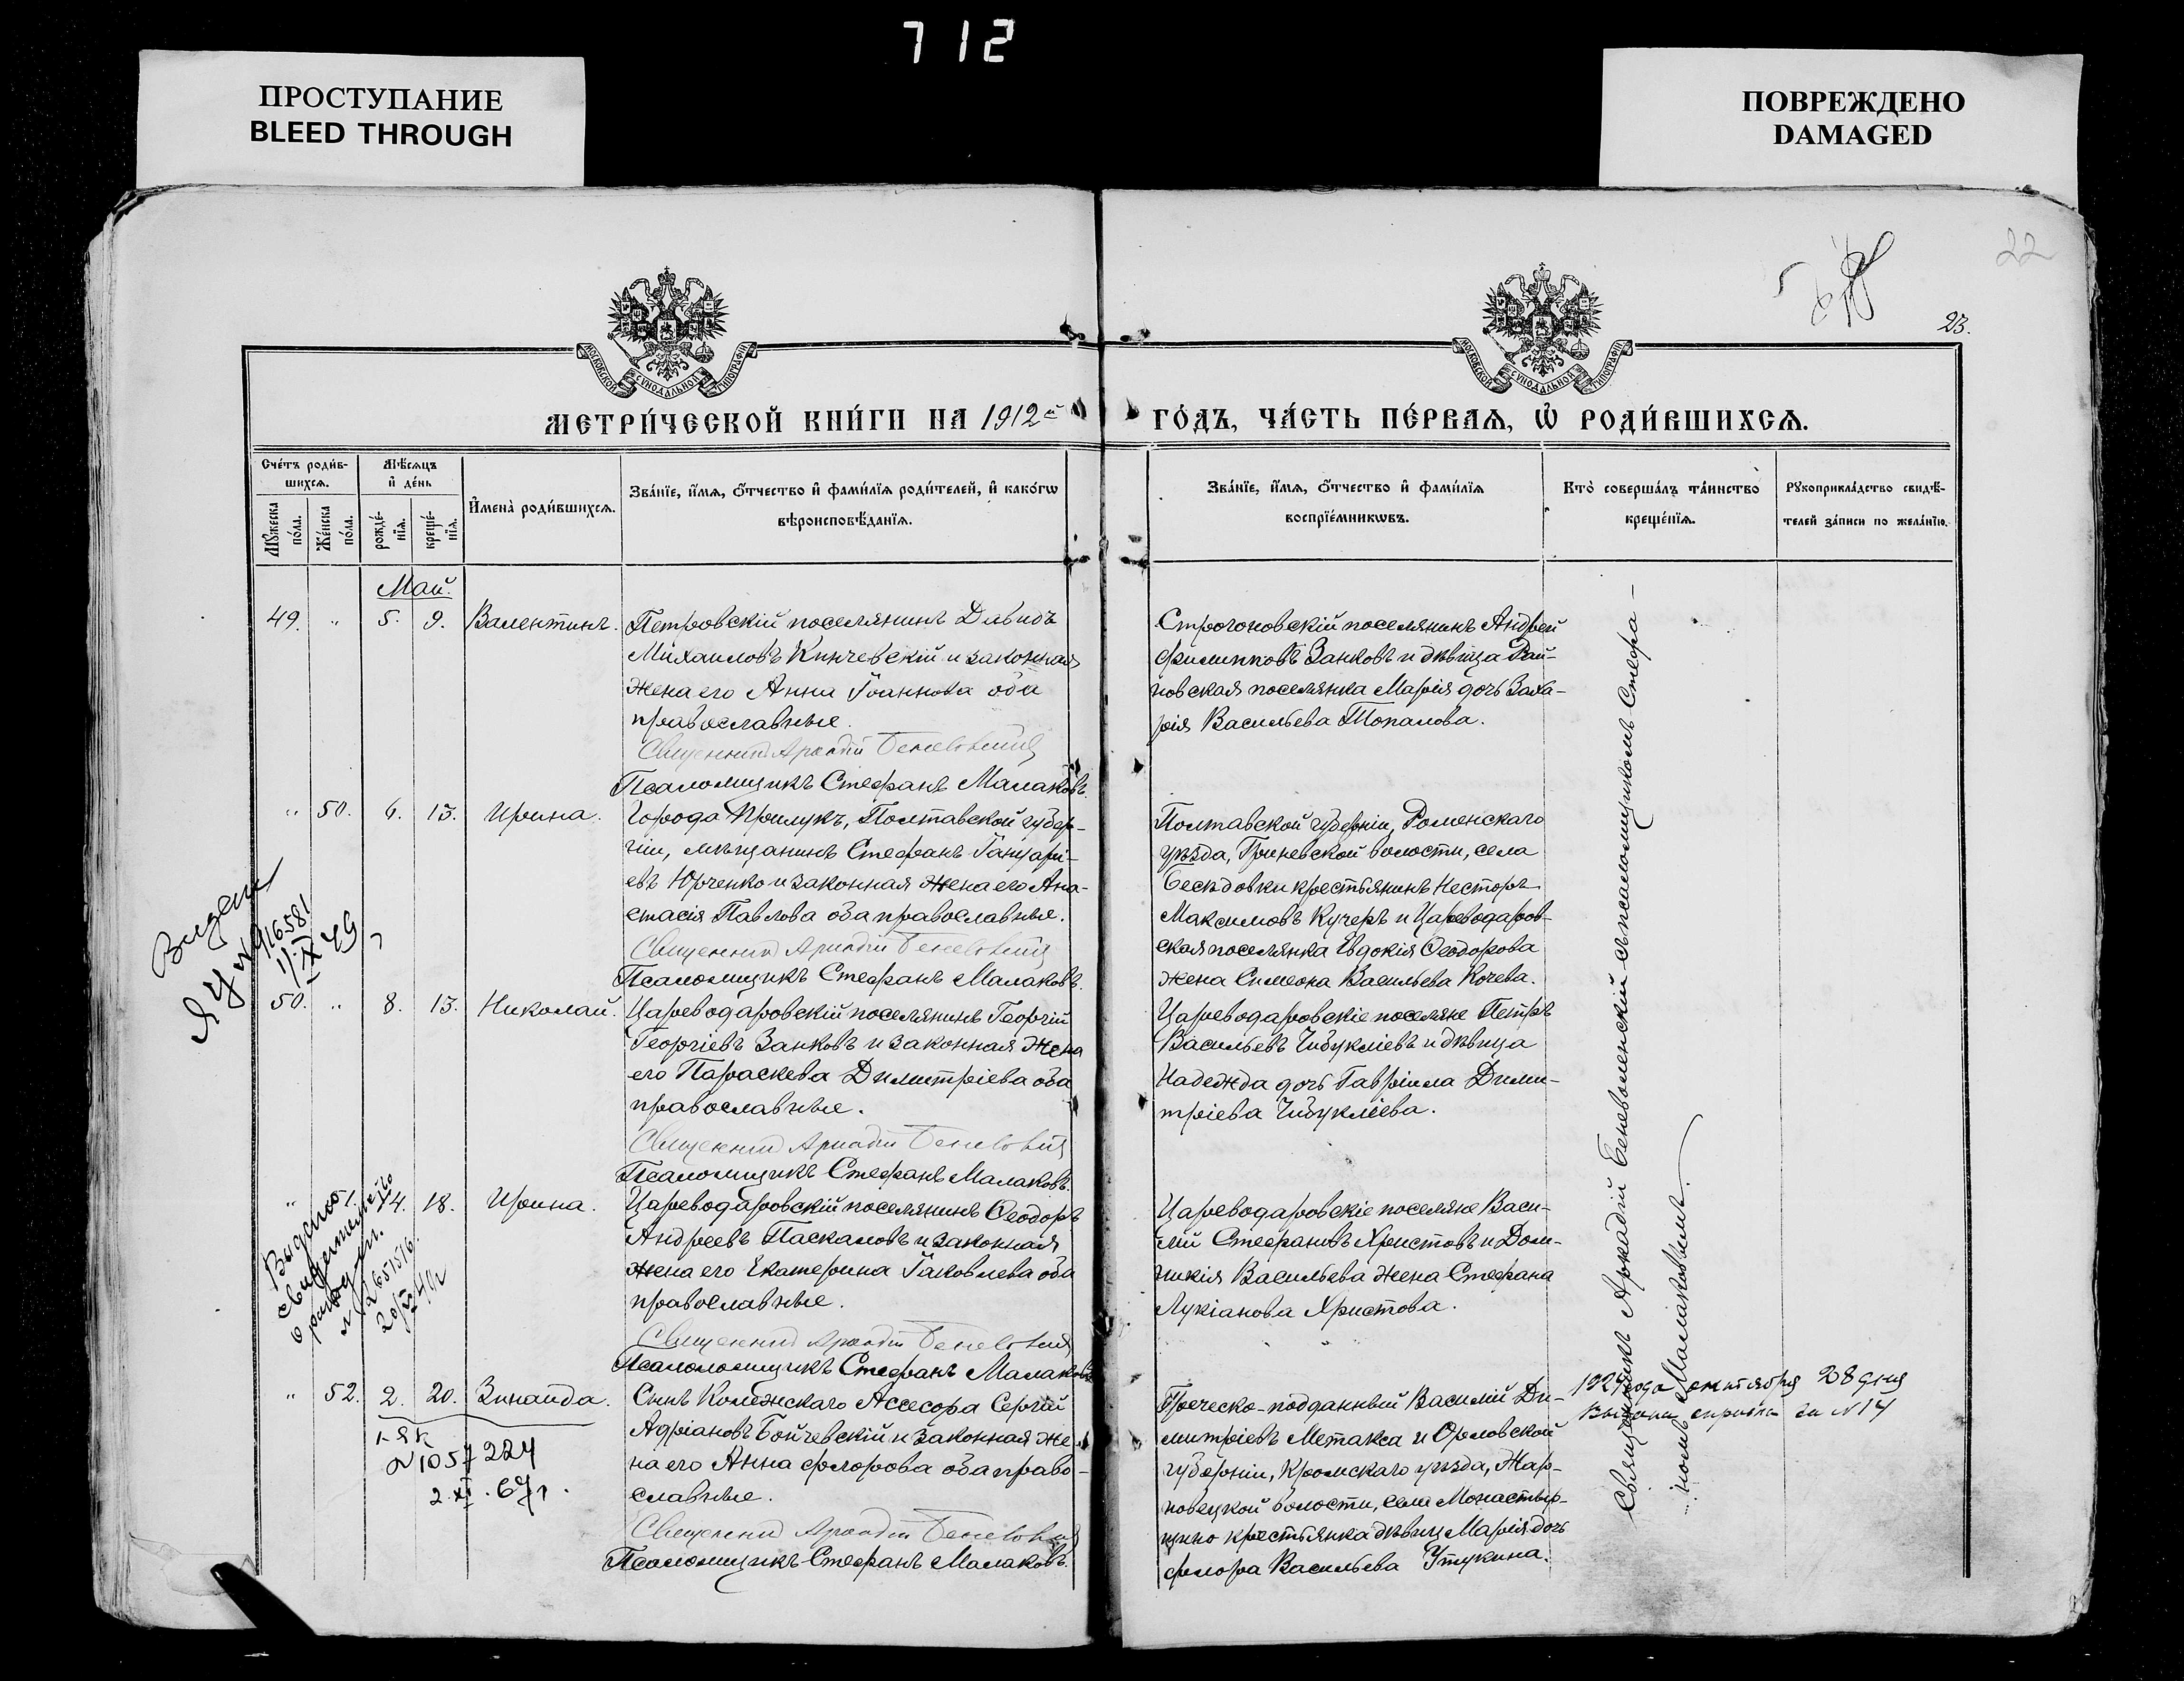 712
ПРОСТУПАНИЕ
BLEED THROUGH
ПОВРЕЖДЕНО
DAMAGED
22
23.
МОСКОВСКОЙ СѴНОДАЛЬНОЙ ТИПОГРАФІИ
МОСКОВСКОЙ СѴНОДАЛЬНОЙ ТИПОГРАФІИ
МЕТРИ́ЧЕСКОЙ КНИ́ГИ НА 1912й
ГО́ДЪ, ЧА́СТЬ ПЕ́РВАѦ, Ѡ҆ РОДИ́ВШИХСѦ.
Сче́тъ роди́в-
шихсѧ.
Мꙋ́жеска
по́ла.
Же́нска
по́ла.
Мѣ́сѧцъ
и҆ де́нь
рожде́-
нїѧ.
креще́-
нїѧ.
И҆мена̀ роди́вшихсѧ.
Зва́нїе, и҆́мѧ, ѻ҆́тчество и҆ фами́лїѧ роди́телей, и҆ како́гѡ
вѣроисповѣ́данїѧ.
Зва́нїе, и҆́мѧ, ѻ҆́тчество и҆ фами́лїѧ
воспрїе́мникѡвъ.
Кто̀ соверша́лъ та́инство
креще́нїѧ.
Рꙋкоприкла́дство свидѣ́-
телей за́писи по жела́нїю.
Май.
49. " 5. 9. Валентинъ.
Петровскій поселянинъ Давидъ
Михаиловъ Кинчевскій и законная
жена его Анна Іоаннова оба
православные.
Священникъ Аркадій Беневоленскій
Псаломщикъ Стефанъ Малаковъ.
Строгоновскій поселянинъ Андрей
Филипповъ Занковъ и дѣвица Рай-
новская поселянка Марія дочь Заха-
рія Васильева Топалова.
" 50. 6. 13. Ирина.
Города Прилукъ, Полтавской губер-
ніи, мѣщанинъ Стефанъ
евъ Юрченко и законная жена его Ана-
стасія Павлова оба православные.
Священникъ Аркадій Беневоленскій
Псаломщикъ Стефанъ Малаковъ.
Полтавской губерніи, Роменскаго
уѣзда, Гриневской волости, села
Бесѣдовки крестьянинъ Несторъ
Максимовъ Кучеръ и Цареводаров-
ская поселянка Евдокія Ѳеодорова
жена Симеона Васильева Кочева.
ЯЦ № 916581
1/IX 49
50. " 8. 13. Николай.
Цареводаровскій поселянинъ Георгій
Георгіевъ Занковъ и законная жена
его Параскева Димитріева оба
православные.
Священникъ Аркадій Беневоленскій
Псаломщикъ Стефанъ Малаковъ.
Цареводаровскіе поселяне Петръ
Васильевъ Чибукліевъ и дѣвица
Надежда дочь Гавріила Дими-
тріева Чибукліева.
" 14. 18. Ирина.
Выдано
свидетельство
о рожд.
Цареводаровскій поселянинъ Ѳеодоръ
Андреевъ Паскаловъ и законная
жена его Екатерина Іаковлева оба
православные.
Священникъ Аркадій Беневоленскій
Псаломщикъ Стефанъ Малаковъ
Цареводаровскіе поселяне Васи-
лій Стефановъ Христовъ и Дом-
никія Васильева жена Стефана
Лукіанова Христова.
" 52. 2. 20. Зинаида.
I-ЯК
№ 1057224
2.XI.67г.
Сынъ Колежскаго Ассесора Сергій
Адріановъ Бойчевскій и законная же-
на его Анна Флорова оба право-
славные.
Священникъ Аркадій Беневоленскій
Псаломщикъ Стефанъ Малаковъ.
Греческо-подданный Василій Ди-
митріевъ Метакса и Орловской
губерніи, Кромскаго уѣзда, Жар-
новецкой волости, села Монастыр-
щино крестьянка дѣвица Марія дочь
Флора Васильева Утукина.
Священникъ Аркадій Беневоленскій съ псаломщикомъ Стефа-
номъ Малаковымъ.
1924 года октября 28 дня
Выдана справка за № 14